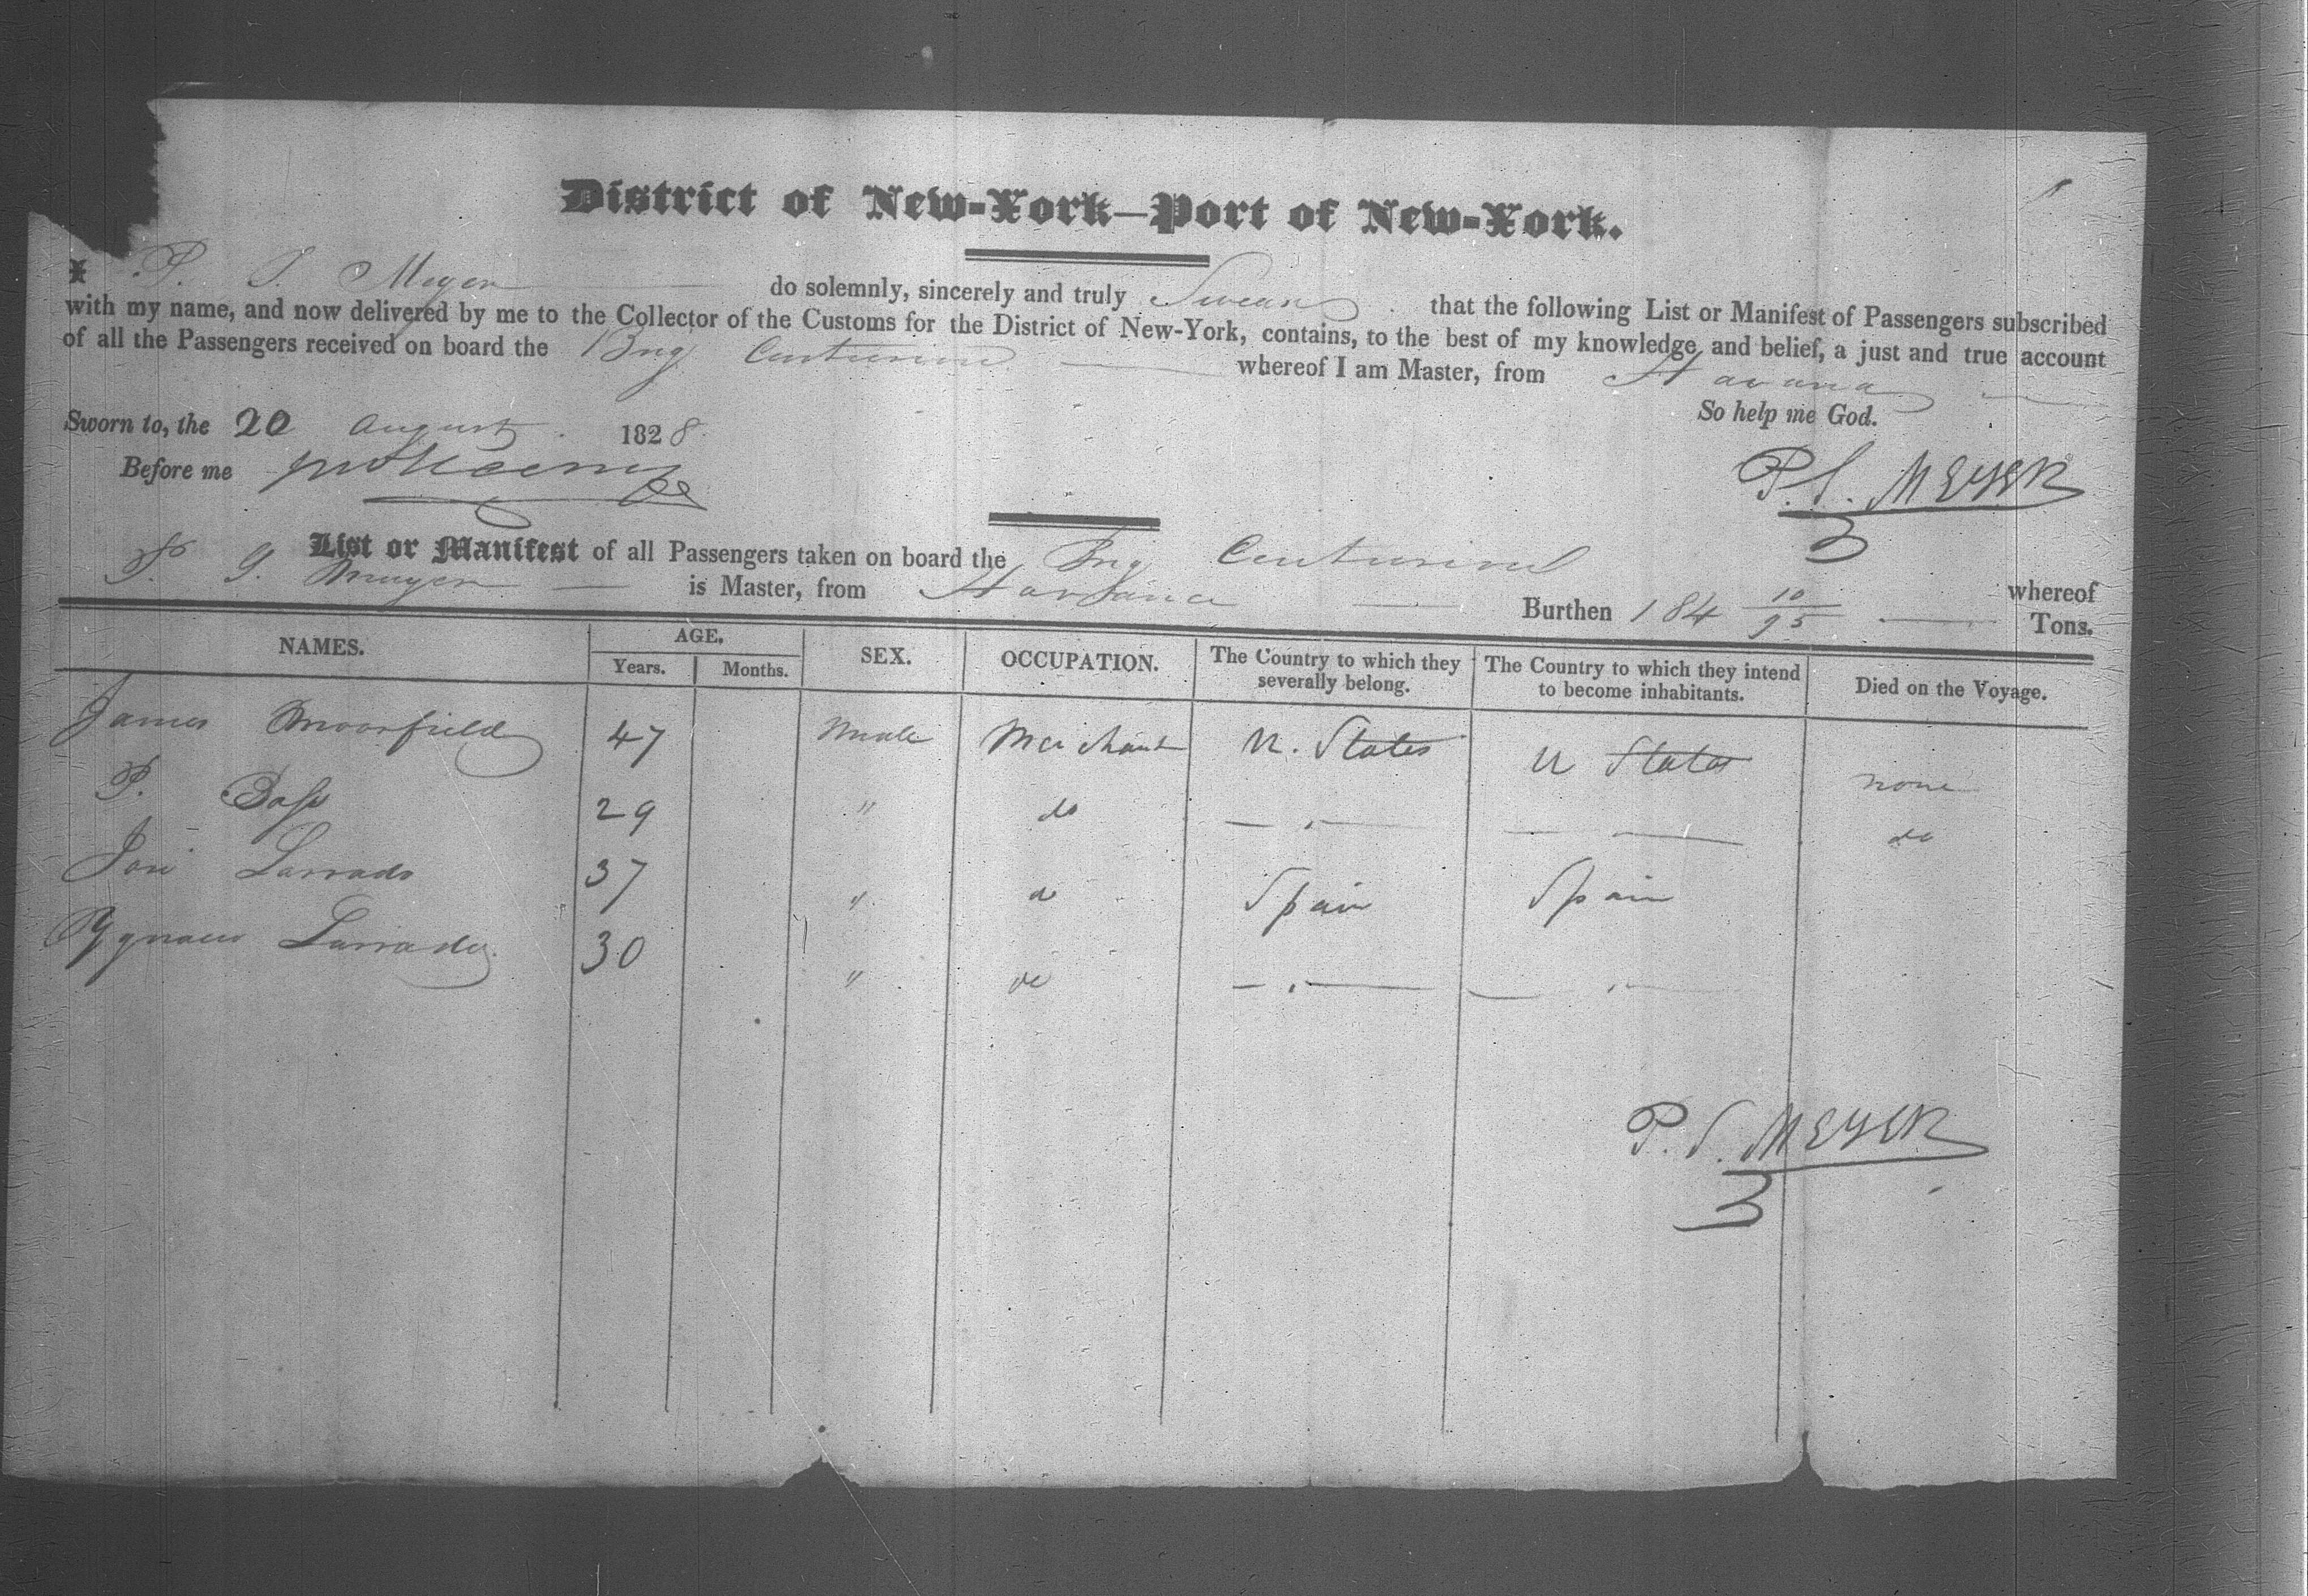 District of New-York—Port of New-York.
I P. S. Meyer do solemnly, sincerely and truly Swear that the following List or Manifest of Passengers subscribed
with my name, and now delivered by me to the Collector of the Customs for the District of New-York, contains, to the best of my knowledge and belief, a just and true account
of all the Passengers received on board the Brig Centurion whereof I am Master, from Havana
So help me God.
Sworn to, the 20 August 1828.
Before me
P. S. MEYER
List or Manifest of all Passengers taken on board the Brig Centurion whereof
P. S. Meyer is Master, from Havana Burthen 184 10/95 Tons.
NAMES. AGE. SEX. OCCUPATION. The Country to which they severally belong. The Country to which they intend to become inhabitants. Died on the Voyage.
Years. Months.
James Moorfield 47 Male Merchant U. States U States none
P. 29 " do — " — — " — do
José Larrado 37 " do Spain Spain
Ygnacio Larrado 30 " do — " — — " —
P. S. MEYER